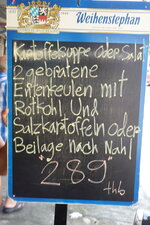 Weihenstephan
Kartoffelsuppe oder Salat
2 gebratene
Entenkeulen mit
Rotkohl Und
Salzkartoffeln oder
Beilage nach Wahl
"2 89"